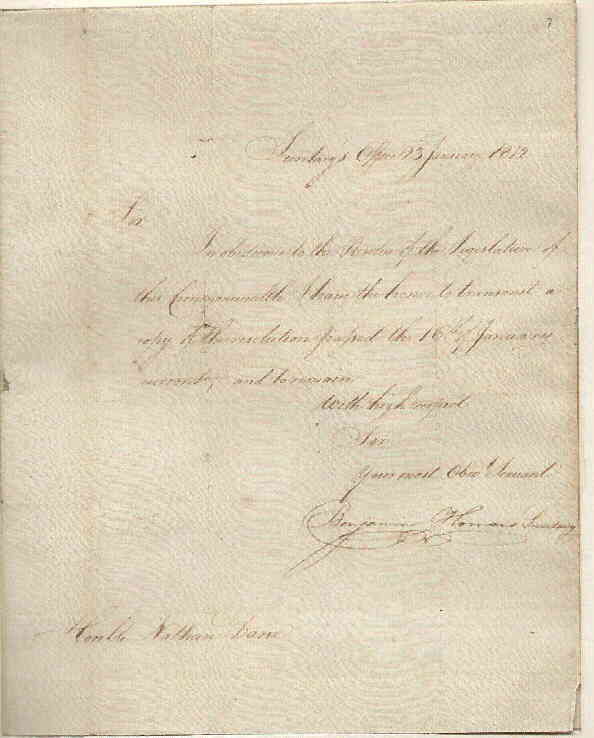 7
Secretary's Office 23 January 1812
Sir
In obedience to the Resolve of the Legislature of
this Commonwealth I have the honor to transmit a
copy of the resolution passed the 16th of January
current, and to remain
With high respect
Sir
Your most Obed Servant
Benjamin Homans Secretary
Honble Nathan Dane